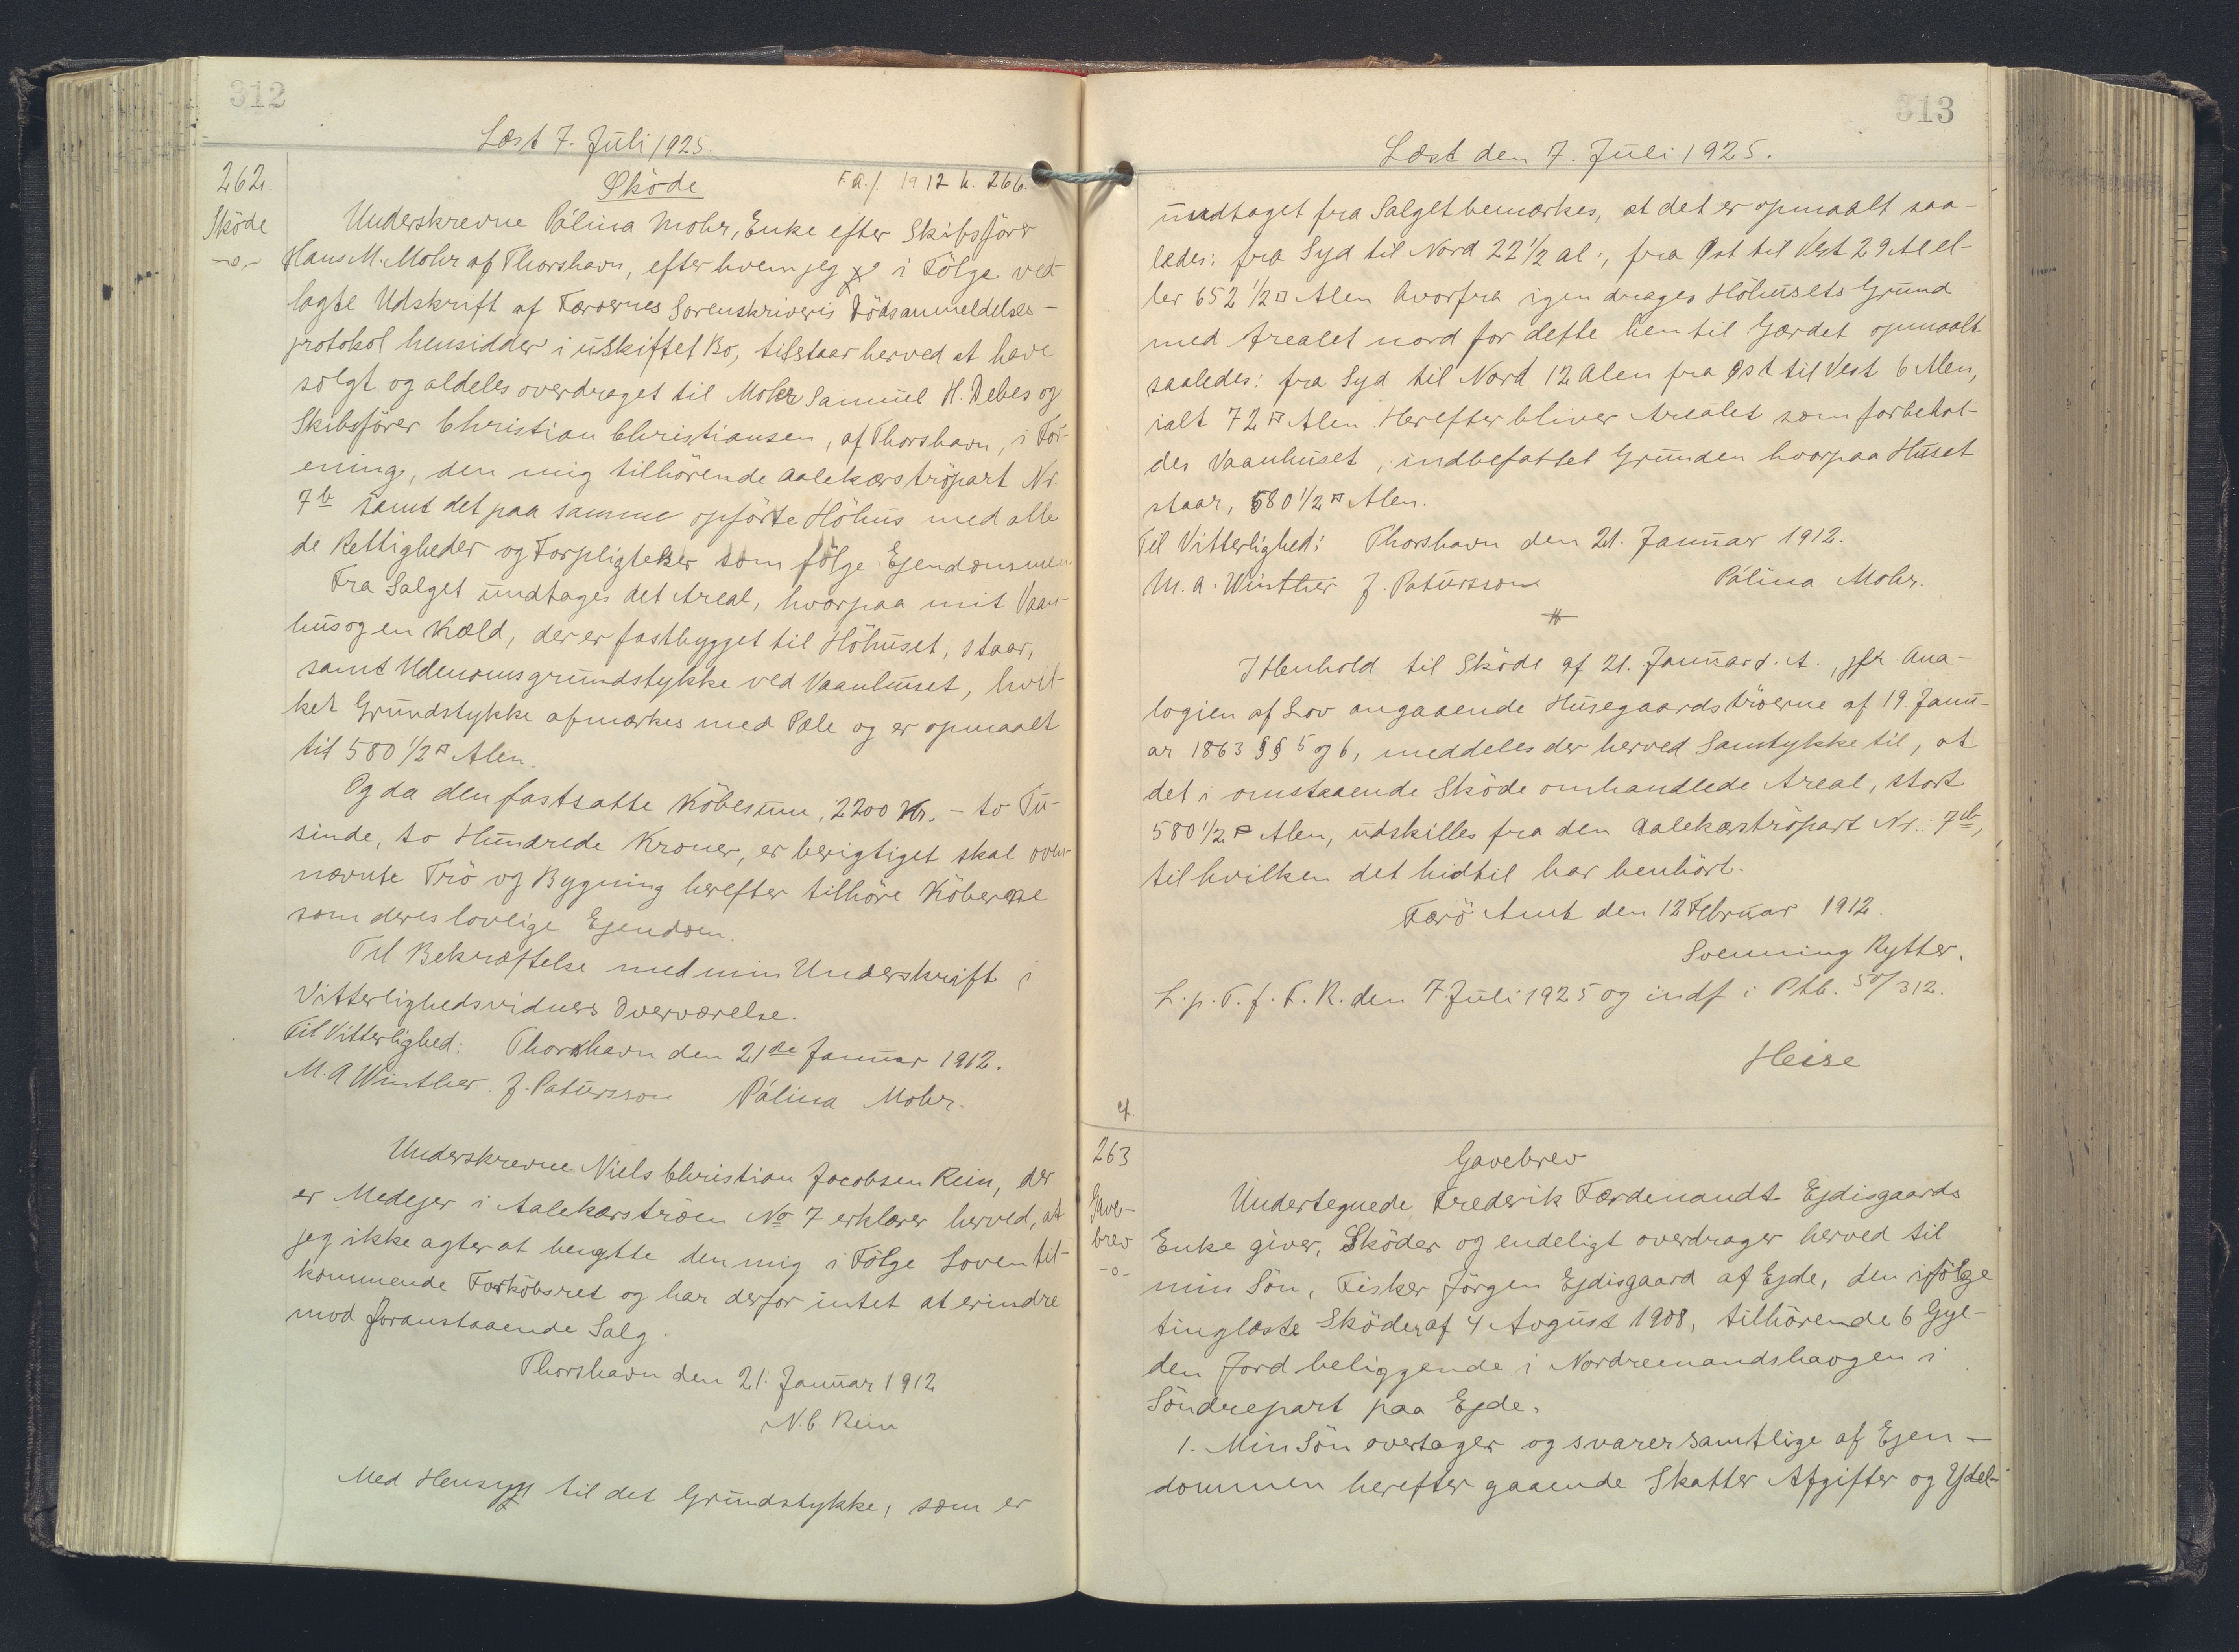 312
Læst 7. Juli 1925.
262.
Sköde
-o-
Sköde
F.A.f. 1912 h. 266.
Underskrevne Pálina Mohr, Enke efter Skibsförer
Hans M. Mohr af Thorshavn, efter hvem jeg i Fölge ved-
lagte Udskrift af Færøernes Sorenskriveris Dödsanmeldelses-
protokol hensidder i uskiftet Bo, tilstaar herved at have
solgt og aldeles overdraget til Mohr Samuel H. Debes og
Skibsförer Christian Christiansen, af Thorshavn, i For-
ening, den mig tilhörende Aalekærströpart Nr.
7b samt det paa samme opförte Höhus med alle
de Rettigheder og Forpligtelser som fölge Ejendommen.
Fra Salget undtages det Areal, hvorpaa mit Vaan-
hus og en Kæld, der er fastbygget til Höhuset, staar,
samt Udenomsgrundstykke ved Vaanhuset, hvil-
ket Grundstykke afmærkes med Pæle og er opmaalt
til 580 1/2 □ Alen.
Og da den fastsatte Köbesum, 2200 Kr. - to Tu-
sinde, to Hundrede Kroner, er berigtiget skal oven-
nævnte Trö og Bygning herefter tilhöre Köberne
som deres lovlige Ejendom.
Til Bekræftelse med min Underskrift i
Vitterlighedsvidners Overværelse.
Til Vitterlighed: Thorshavn den 21de Januar 1912.
M. A Winther. J. Patursson Pálina Mohr.
Underskrevne Niels Christian Jacobsen Rein, der
er Medejer i Aalekærströen No 7 erklærer herved, at
jeg ikke agter at benytte den mig i Fölge Loven til-
kommende Forköbsret og har derfor intet at erindre
mod foranstaaende Salg.
Thorshavn den 21. Januar 1912
N. C. Rein
Med Hensyn til det Grundstykke, som er
313
Læst den 7. Juli 1925.
undtaget fra Salget bemærkes, at det er opmaalt saa-
ledes: fra Syd til Nord 22 1/2 al:, fra Øst til Vest 29 Al el-
ler 652 1/2 □ Alen hvorfra igen drages Höhusets Grund
med Arealet nord for dette hen til Gærdet opmaalt
saaledes: fra Syd til Nord 12 Alen fra Øst til Vest 6 Alen,
ialt 72 □ Alen. Herefter bliver Arealet som forbehol-
des Vaanhuset, indbefattet Grunden hvorpaa Huset
staar, 580 1/2 □ Alen.
Til Vitterlighed: Thorshavn den 21. Januar 1912.
M. A. Winther J. Patursson Pálina Mohr.
I Henhold til Sköde af 21. Januar d. A., jfr. Ana-
logien af Lov angaaende Husegaardströerne af 19. Janu-
ar 1863 §§ 5 og 6, meddeles der herved Samtykke til, at
det i omstaaende Sköde omhandlede Areal, stort
580 1/2 □ Alen, udskilles fra den Aalekærströpart Nr. 7b,
til hvilken det hidtil har henhört.
Færö Amt den 12 Februar 1912.
Svenning Rytter.
L. p. T. f. F. R. den 7 Juli 1925 og indf i Ptb. 50/312.
Heise
cf.
263
Gave-
brev
-o-
Gavebrev
Undertegnede Frederik Færdenandt Ejdisgaards
Enke giver, Sköder og endeligt overdrager herved til
min Sön, Fisker Jörgen Ejdisgaard af Ejde, den ifölge
tinglæste Sköder af 4 August 1908, tilhörende 6 Gyl-
den Jord beliggende i Nordremandshavgen i
Söndrepart paa Ejde.
1. Min Sön overtager og svarer samtlige af Ejen-
dommen herefter gaaende Skatter Afgifter og Ydel-